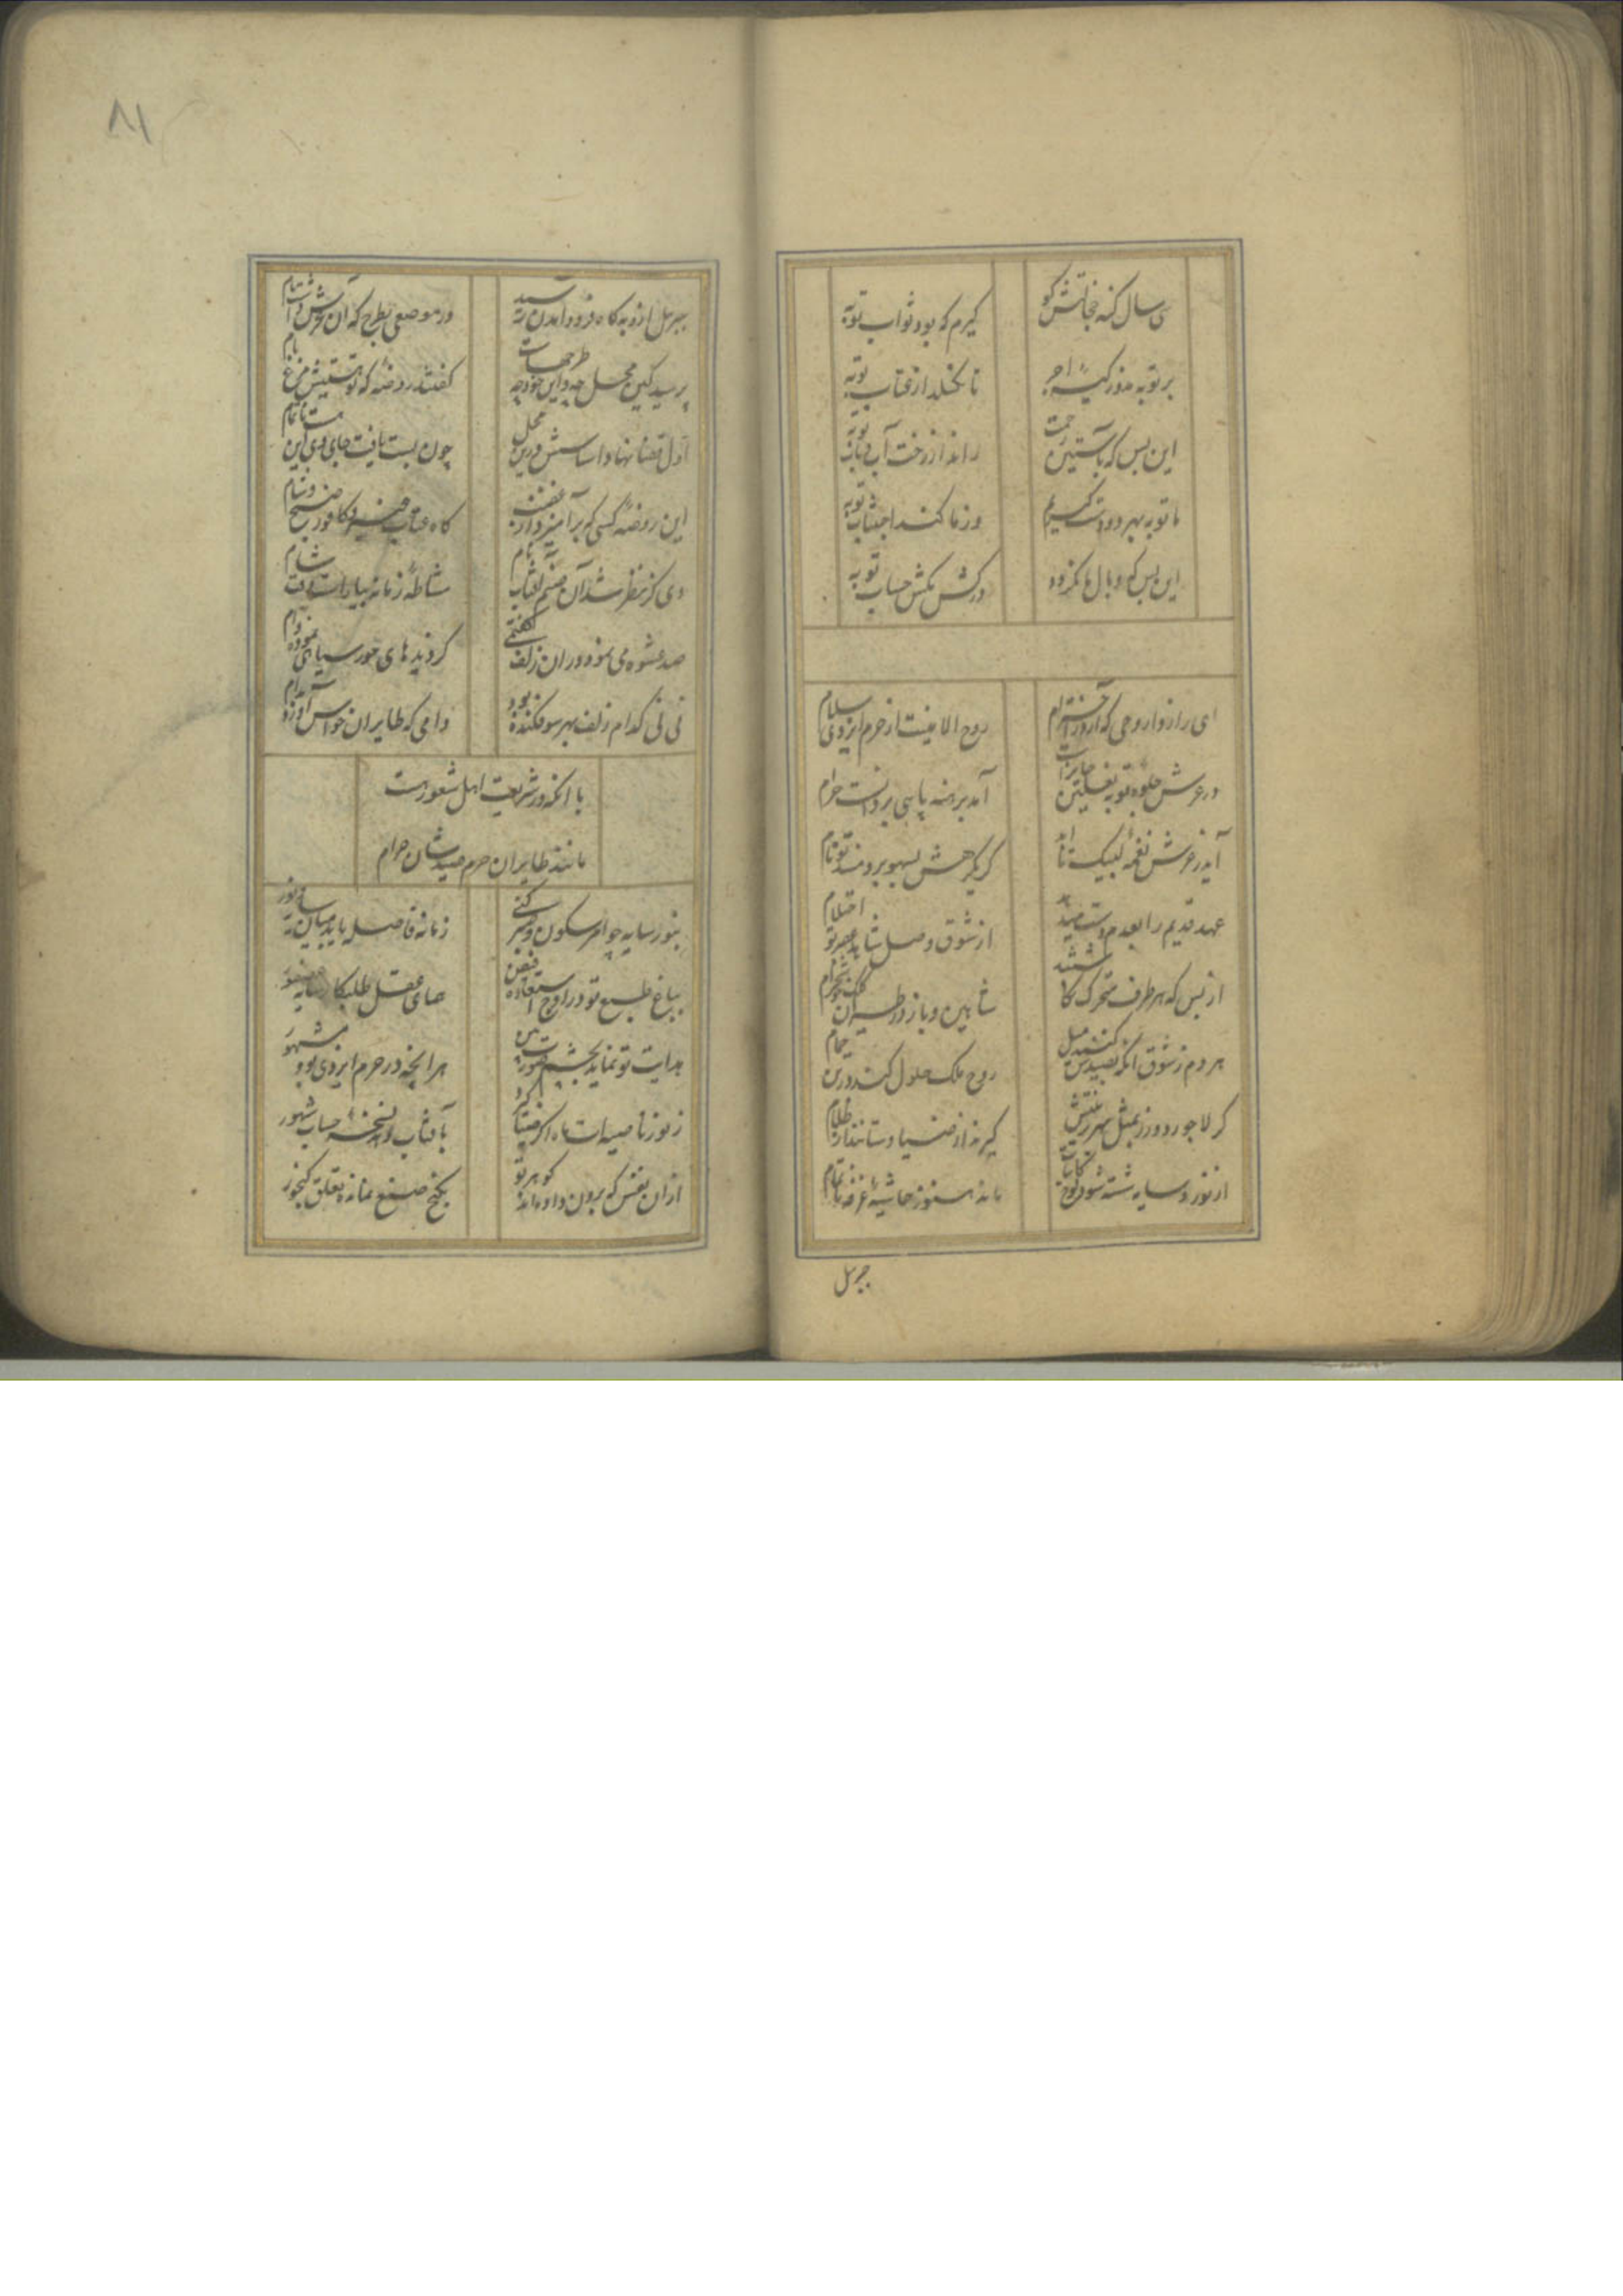 سی سال کنه خجالتش کو
کیرم که بود ثواب توبه
بر توبه مدوز کیسهٔ اجر
تا نکسلد از عتاب توبه
این بس که بآستین رحمت
راند از رخت آب توبه
ما توبه بهر دو دست کیریم
وز ما کند اجتناب توبه
این بس که وبال ما نکردد
در کش مکش حساب توبه
ای راز دار وحی که از روی احترام
روح الامینت از حرم ایزدی سلام
در عرش جلوه تو بنعلین
آمد برهنه پا بی بردانست حرام
آید ز عرش نغمه لبیک تا ابد
کر یکرهش بسهو برومند تو نام
عهد قدیم را بعدم دست میدهد
از شوق وصل شاهد عصر تو احتلام
از بس که هر طرف متحرک
شاهین و باز در طیران کبک در خرام
هر دم ز شوق آنکه بصیدش کنند میل
روح ملک حلول کند در تن حمام
کر لاجورد و زر بمثل بهر زینتش
کیرند از ضیا و ستانند از ظلام
از نور و سایه شسته شود لوح کاینات
ماند هنوز حاشیهٔ غرفه ناتمام
جبرئیل
۸۱
جبریل از و به کاه فرود آمدن رسید
در موضعی بطرح که آن عرش داشت نام
پرسید کین محل چه و این خود چه طرح‌هاست
کفتند روضه که تو هستیش مرغ بام
اول قضا نهاد اساسش درین محل
چون بست یافت جای وی این هست ناتمام
این روضه کسی که برآمیزد از بنفشه
کاه عتاب عنبر و کافور صبح و شام
دی کز نظر شد آن صنم آفتاب نام
مشاطه زمانه بیاراست زلف شام
صد عشوه می نمود در آن زلف گفتمی
کز دیدهای حور سیاهی نموده وام
نی نی کدام زلف بهر سو فکنده بود
دامی که طایران حواس آورد بدام
با آنکه در شریعت اهل شعور هست
مانند طایران حرم صیدشان حرام
بنور سایه چو امر سکون و سیر کنی
زمانه فاصله یابد میان سایه و نور
بباغ طبع تو در اوج استفاده فیض
همای عقل طلبکار سایه عصفور
هدایت تو نماید بچشم صورت بین
هر آنچه در حرم ایزدی بود مشهور
ز نور ناصیه ات ماه اکر ضیا کیرد
بآفتاب دهد نسخهٔ حساب شهور
از آن نفس که برون داده اند کوهر تو
بکنج صنع نمانده تعلق کنجور